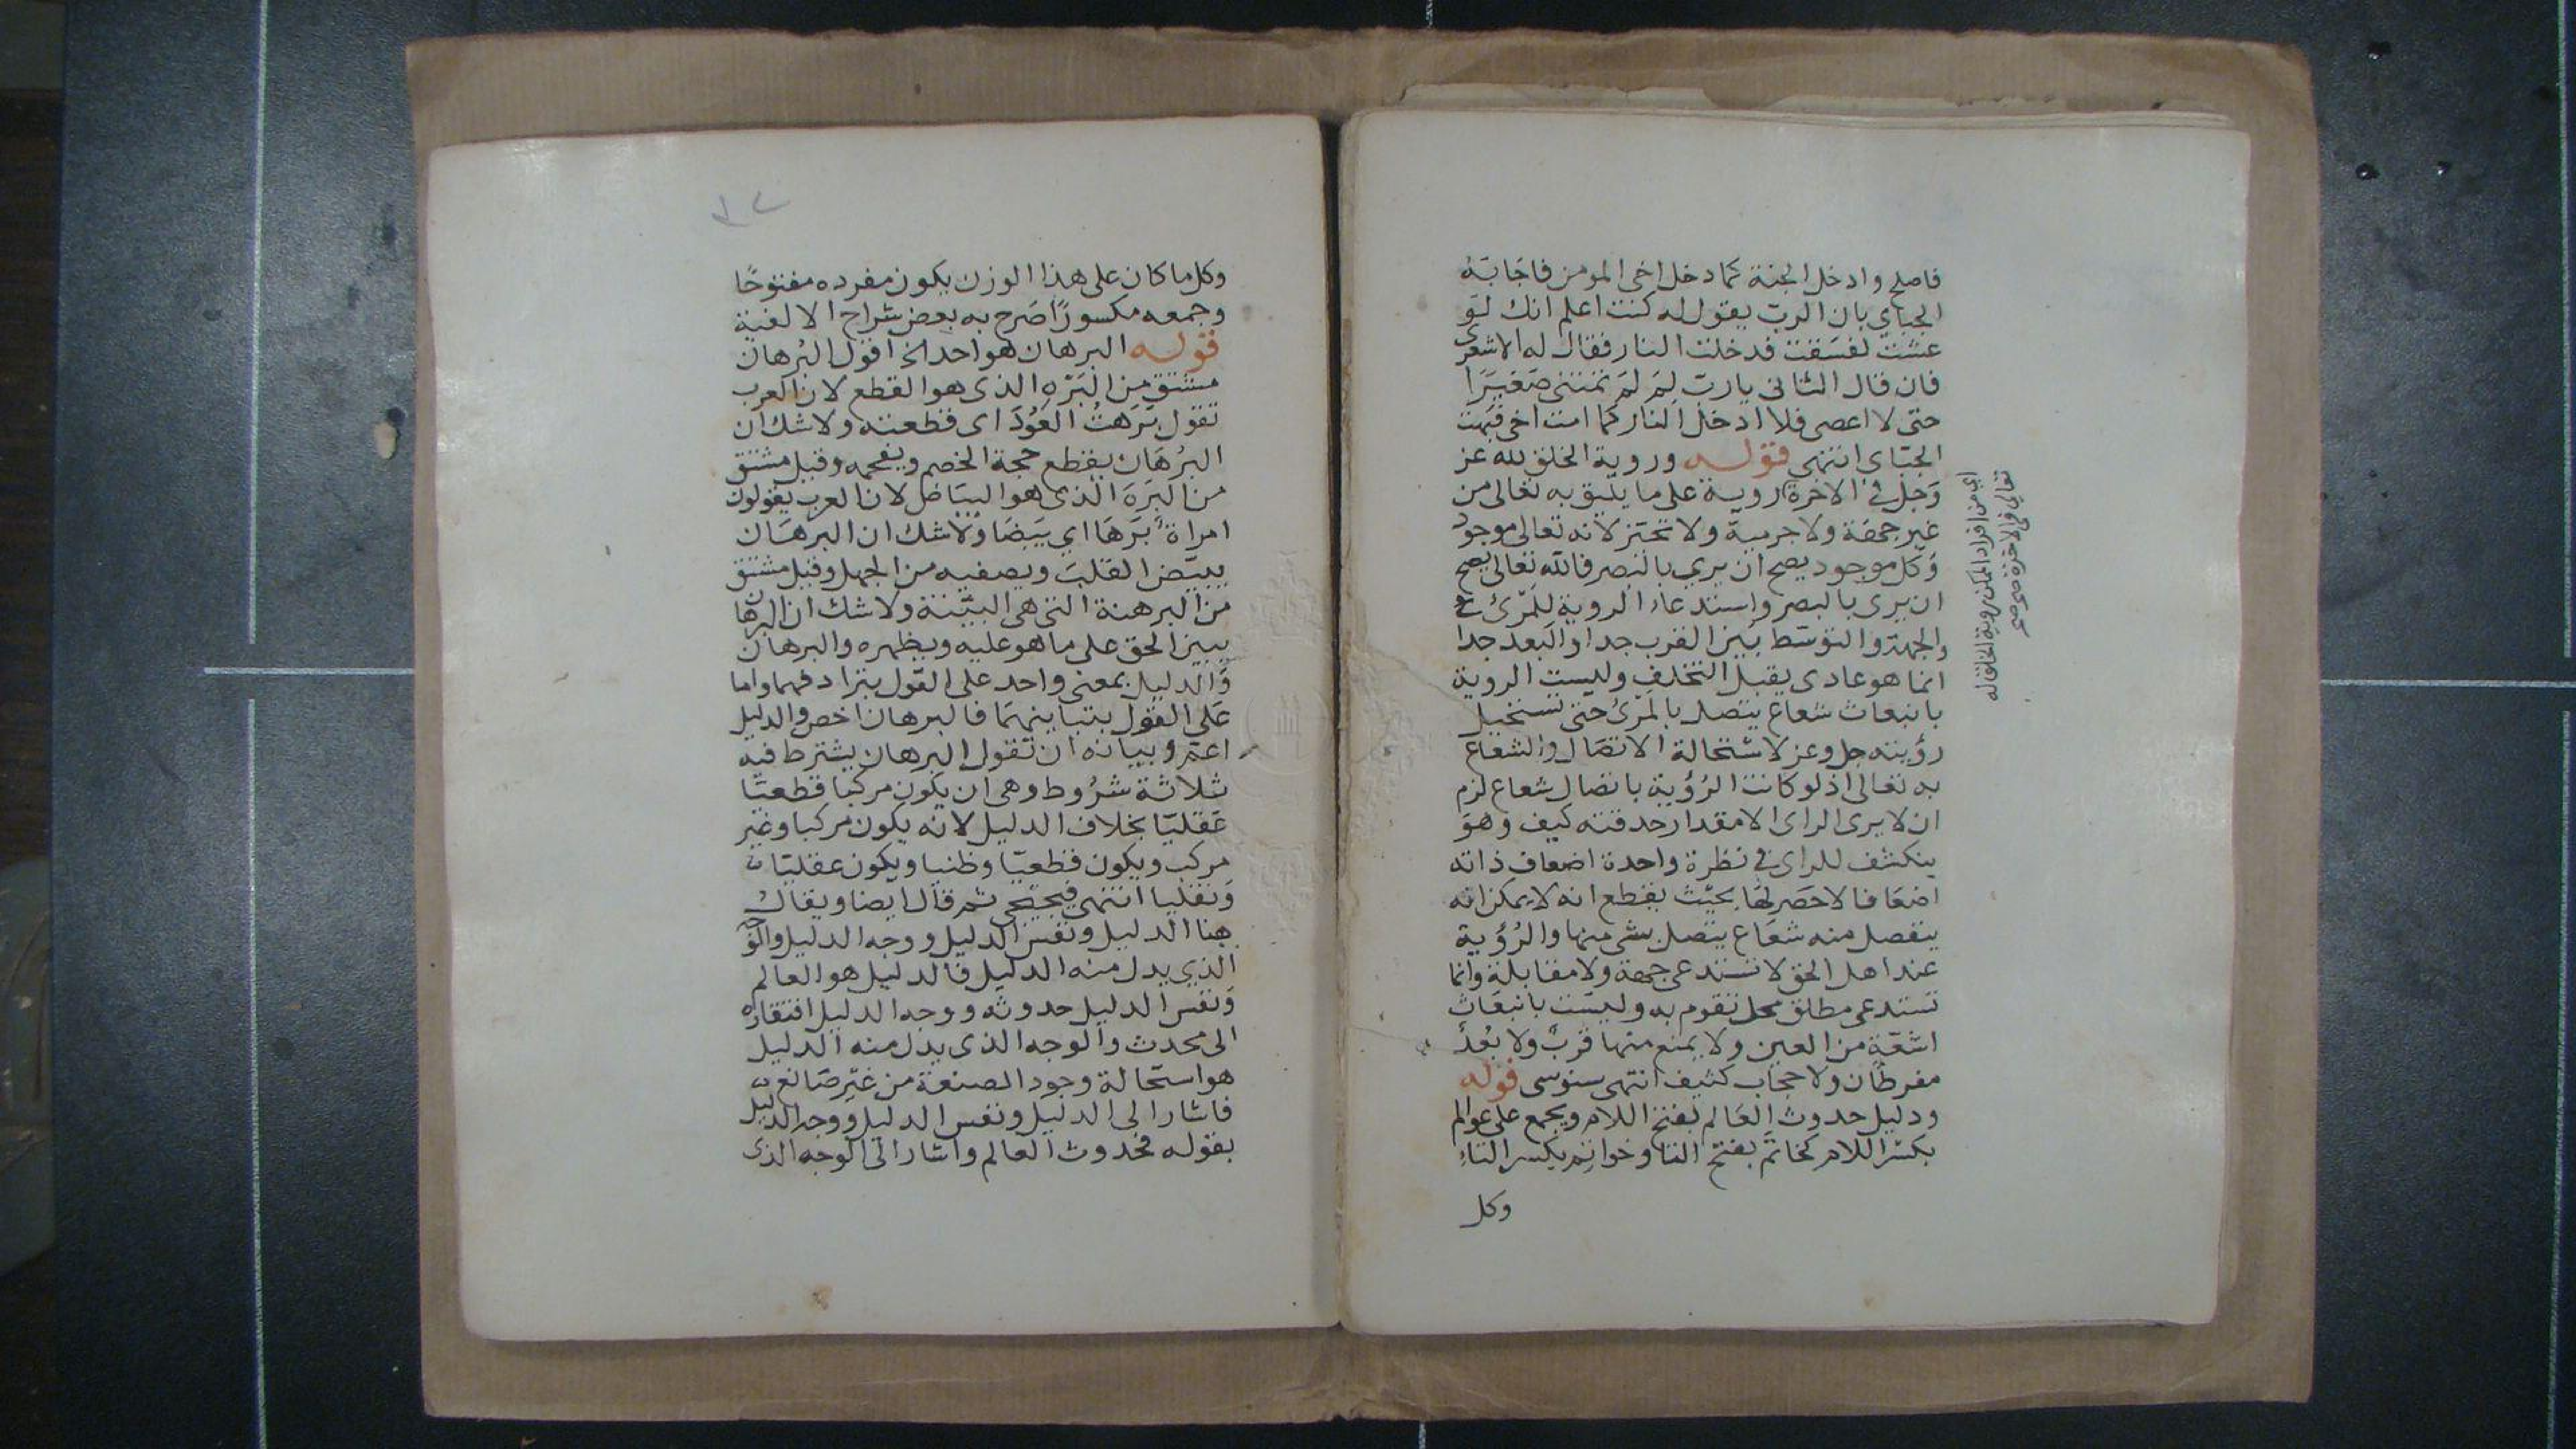 فاصلح وادخل الجنة كما دخل اخي المومن فاجابه
الجباي بان الرب يقول له كنت اعلم انك لو
عشت لفسقت فدخلت النار فقال له الاشعري
فان قال الثاني يا رب لِمَ لَمْ تمتني صغيرًا
حتى لا اعصى فلا ادخل النار كما امت اخي فبهت
الجباي انتهي قوله وروية الخلق لله عز
وجل في الاخرة روية على ما يليق به تعالى من
غير جهة ولا جرمية ولا تحيّز لانه تعالى موجود
وكل موجود يصح ان يري بالبصر فالله تعالى يصح
ان يرى بالبصر واستدعاء الروية للمرئ
والجهة والتوسّط بين القرب جدا والبعد جدا
انما هو عادى يقبل التخلف وليست الروية
بانبعاث شعاع يتصل بالمرئ حتى تستحيل
رؤيته جل وعز لاستحالة الاتصال والشعاع
به تعالى اذ لو كانت الرؤية باتصال شعاع لزم
ان لا يرى الراى الا مقدار حدقته كيف وهو
ينكشف للراى في نظرة واحدة اضعاف ذاته
اضعافا لا حصر لها بحيث يقطع انه لا يمكن انه
ينفصل منه شعاع يتصل بشى منها والرؤية
عند اهل الحق لا تستدعى جهة ولا مقابلة وانما
تستدعى مطلق محل تقوم به وليست بانبعاث
اشعّة من العين ولا يمنع منها قربٌ ولا بُعدٌ
مفرطان ولا حجاب كثيف انتهى سنوسى قوله
ودليل حدوث العالم بفتح اللام ويجمع على عوالم
بكسر اللام كخاتَم بفتح التا وخواتِم بكسر التاءِ
وكل
اي من افراد الممكن روية الخلق له
تعالى في الاخرة
وكل ما كان على هذا الوزن يكون مفرده مفتوحًا
وجمعه مكسورًا صرح به بعض شراح الالفية
قوله البرهان هو احد الخ اقول البُرهان
مشتق من البَرْهِ الذى هو القطع لان العرب
تقول بَرَهتُ العُودَ اى قطعته ولا شك ان
البُرهان يقطع حجة الخصم ويفحمه وقيل مشتق
من البَرَهَ الذى هو البياض لان العرب يقولون
امراة بَرَهَا اي بَيضَا ولا شك ان البرهان
يبيّض القلب ويصفيه من الجهل وقيل مشتق
من البرهنة التى هى البيّنة ولا شك ان البرهان
يبين الحق على ما هو عليه ويظهره والبرهان
والدليل بمعنى واحد على القول بترادفهما واما
على القول بتباينهما فالبرهان اخص والدليل
اعم وبيانه ان تقول البرهان يشترط فيه
ثلاثة شُروط وهى ان يكون مركبا قطعيّا
عقليّا بخلاف الدليل لانه يكون مركبا وغير
مركب ويكون قطعيّا وظنيا ويكون عقليّا
ونقليا انتهى فيجيجى ثم قال ايضا ويقال
هنا الدليل ونفس الدليل ووجه الدليل والوجه
الذي يدل منه الدليل فالدليل هو العالم
ونفس الدليل حدوثه ووجه الدليل افتقاره
الى محدث والوجه الذى يدل منه الدليل
هو استحالة وجود الصنعة من غير صَانع
فاشار الى الدليل ونفس الدليل ووجه الدليل
بقوله فحدوث العالم واشار الى الوجه الذى